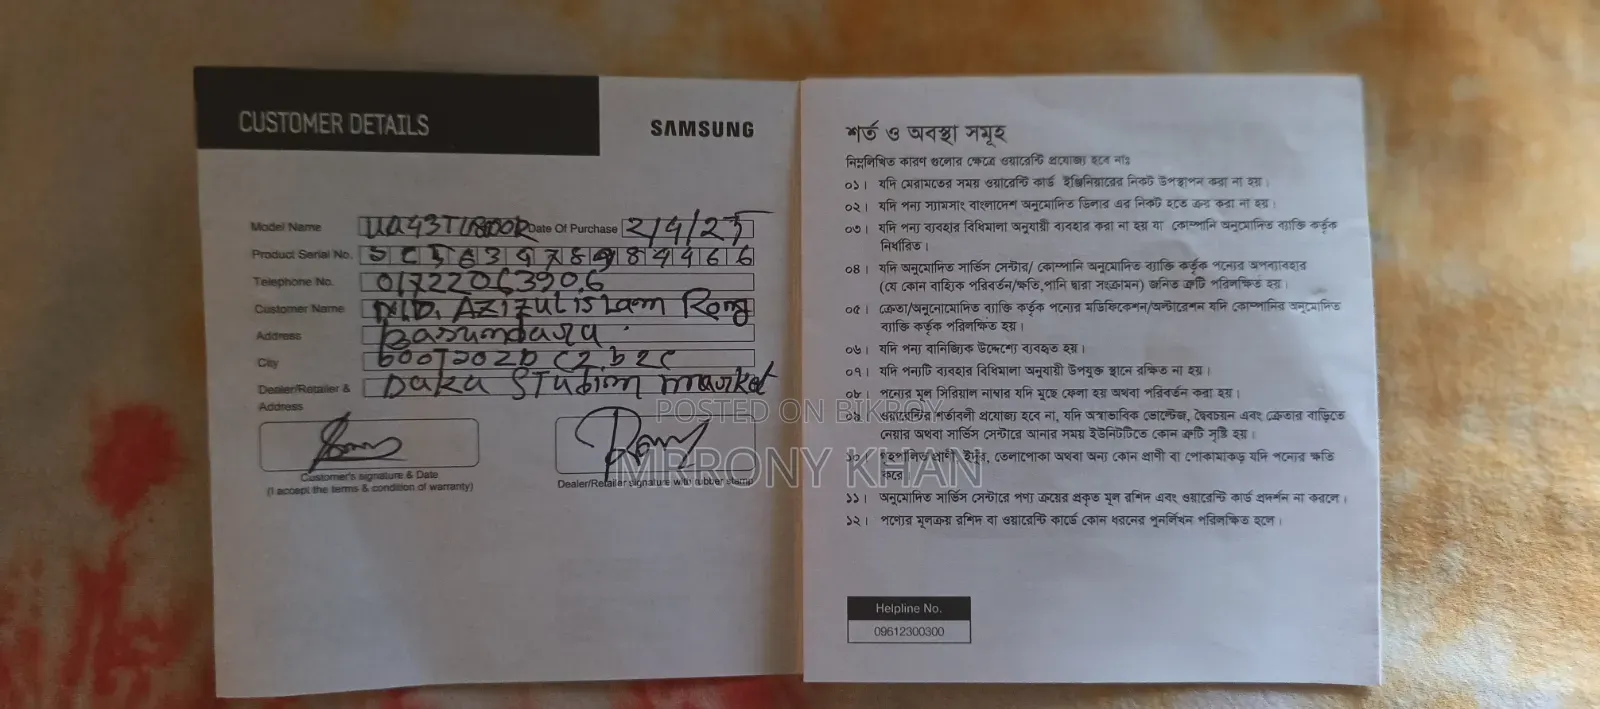 CUSTOMER DETAILS
SAMSUNG
Model Name UA43T Date Of Purchase 2/4/25
Product Serial No.
Telephone No. 01722063906
Customer Name MD. Azizul islam Rony
Address Basundara
City
Dealer/Retailer & Daka STudim market
Address
Customer's signature & Date
(I accept the terms & condition of warranty)
Dealer/Retailer signature with rubber stamp
শর্ত ও অবস্থা সমূহ
নিম্নলিখিত কারণ গুলোর ক্ষেত্রে ওয়ারেন্টি প্রযোজ্য হবে নাঃ
০১। যদি মেরামতের সময় ওয়ারেন্টি কার্ড ইঞ্জিনিয়ারের নিকট উপস্থাপন করা না হয়।
০২। যদি পন্য স্যামসাং বাংলাদেশ অনুমোদিত ডিলার এর নিকট হতে ক্রয় করা না হয়।
০৩। যদি পন্য ব্যবহার বিধিমালা অনুযায়ী ব্যবহার করা না হয় যা কোম্পানি অনুমোদিত ব্যাক্তি কর্তৃক
নির্ধারিত।
০৪। যদি অনুমোদিত সার্ভিস সেন্টার/ কোম্পানি অনুমোদিত ব্যাক্তি কর্তৃক পন্যের অপব্যাবহার
(যে কোন বাহ্যিক পরিবর্তন/ক্ষতি,পানি দ্বারা সংক্রামন) জনিত ত্রুটি পরিলক্ষিত হয়।
০৫। ক্রেতা/অনুনোমোদিত ব্যাক্তি কর্তৃক পন্যের মডিফিকেশন/অল্টারেশন যদি কোম্পানির অনুমোদিত
ব্যাক্তি কর্তৃক পরিলক্ষিত হয়।
০৬। যদি পন্য বানিজ্যিক উদ্দেশ্যে ব্যবহৃত হয়।
০৭। যদি পন্যটি ব্যবহার বিধিমালা অনুযায়ী উপযুক্ত স্থানে রক্ষিত না হয়।
০৮। পন্যের মূল সিরিয়াল নাম্বার যদি মুছে ফেলা হয় অথবা পরিবর্তন করা হয়।
০৯। ওয়ারেন্টির শর্তাবলী প্রযোজ্য হবে না, যদি অস্বাভাবিক ভোল্টেজ, দ্বৈবচয়ন এবং ক্রেতার বাড়িতে
নেয়ার অথবা সার্ভিস সেন্টারে আনার সময় ইউনিটটিতে কোন ত্রুটি সৃষ্টি হয়।
১০। গৃহপালিত প্রাণী, ইদুঁর, তেলাপোকা অথবা অন্য কোন প্রাণী বা পোকামাকড় যদি পন্যের ক্ষতি
করে
১১। অনুমোদিত সার্ভিস সেন্টারে পণ্য ক্রয়ের প্রকৃত মূল রশিদ এবং ওয়ারেন্টি কার্ড প্রদর্শন না করলে।
১২। পণ্যের মূলক্রয় রশিদ বা ওয়ারেন্টি কার্ডে কোন ধরনের পুনর্লিখন পরিলক্ষিত হলে।
Helpline No.
09612300300
POSTED ON BIKROY
MPRONY KHAN